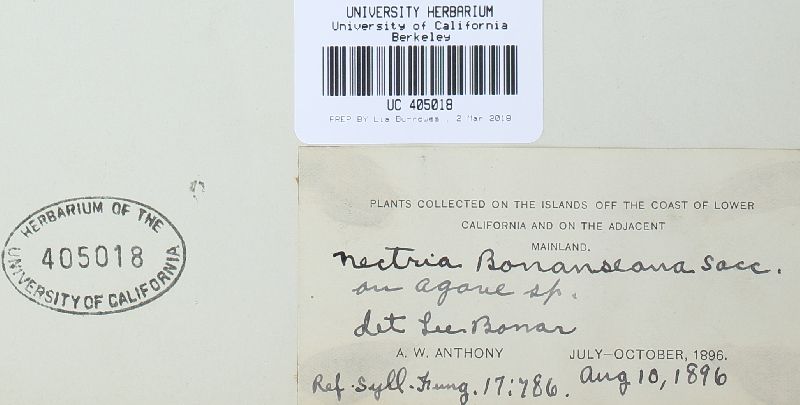 UNIVERSITY HERBARIUM
University of California
Berkeley
UC 405018
PREP BY Lia Burrowes , 2 Mar 2018
HERBARIUM OF THE
405018
UNIVERSITY OF CALIFORNIA
PLANTS COLLECTED ON THE ISLANDS OFF THE COAST OF LOWER
CALIFORNIA AND ON THE ADJACENT
MAINLAND.
Nectria Bonanseana Sacc.
on Agave sp.
det Lee Bonar
A. W. ANTHONY JULY–OCTOBER, 1896.
Ref. Syll. Fung. 17:786. Aug 10, 1896